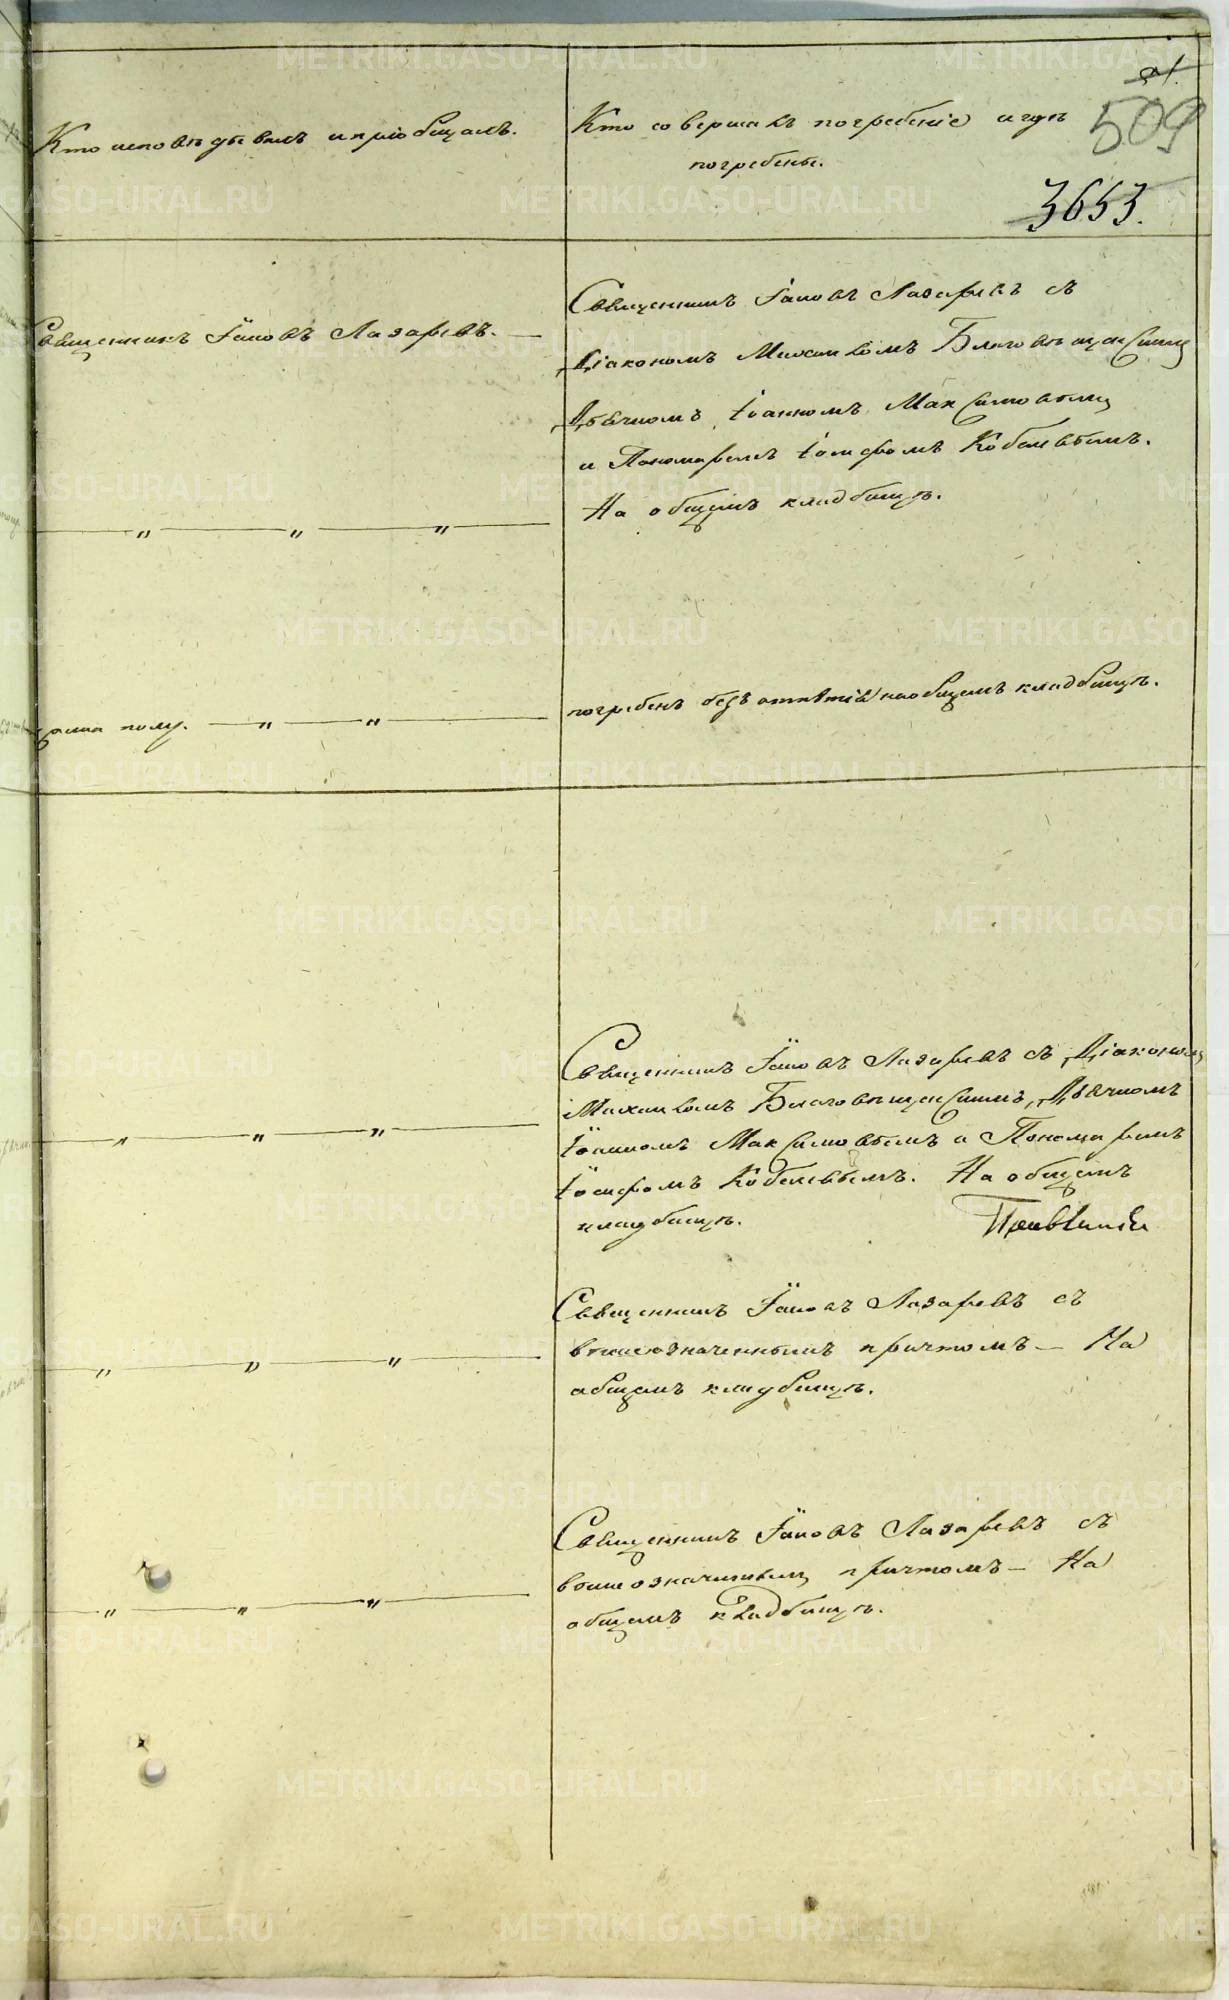 509
3653.
Кто исповѣдывалъ и пріобщалъ.
Кто совершалъ погребеніе и гдѣ
погребены.
Священникъ Іаковъ Лазаревъ.
Священникъ Іаковъ Лазаревъ съ
Діакономъ Михаиломъ Благовѣщенскимъ
Дьячкомъ Іоанномъ Максимовымъ
и Пономаремъ Іосифомъ Кобелевымъ.
На общемъ кладбищѣ.
— „ — „ — „ —
— „ — „ —
погребенъ безъ отпѣтія на общемъ кладбищѣ.
Священникъ Іаковъ Лазаревъ съ Діакономъ
Михаиломъ Благовѣщенскимъ, Дьячкомъ
Іоанномъ Максимовымъ и Пономаремъ
Іосифомъ Кобелевымъ. На общемъ
кладбищѣ.
— „ — „ — „ —
Священникъ Іаковъ Лазаревъ съ
вышеозначеннымъ причтомъ — На
общемъ кладбищѣ.
— „ — „ — „ —
Священникъ Іаковъ Лазаревъ съ
вышеозначеннымъ причтомъ — На
общемъ кладбищѣ.
— „ — „ — „ —
METRIKI.GASO-URAL.RU